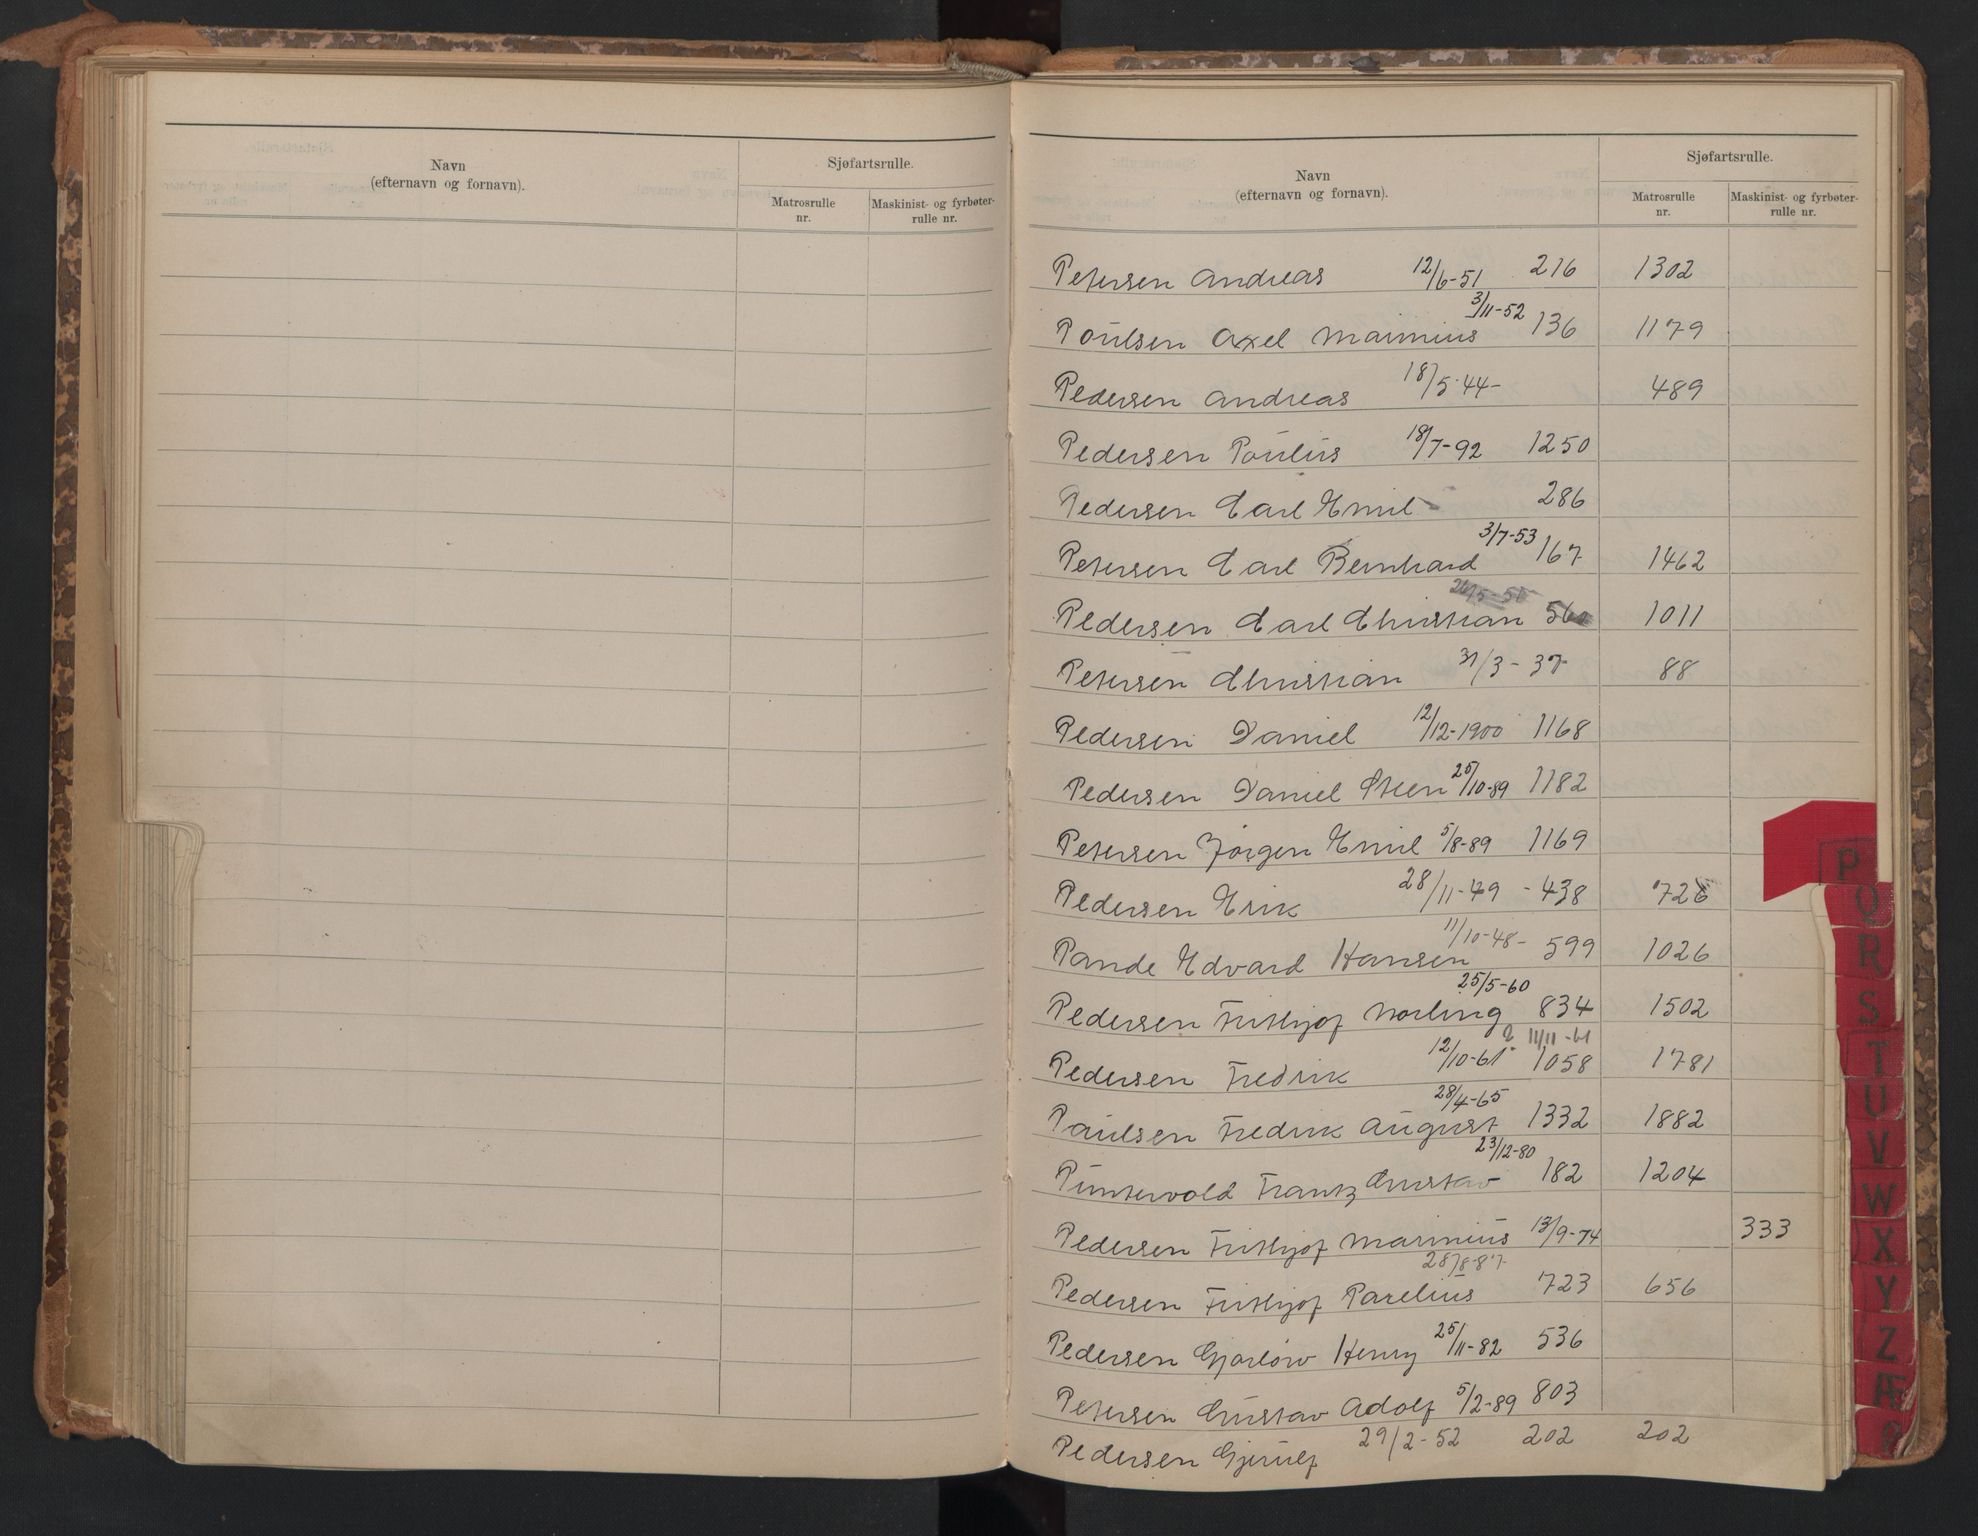 Navn
(efternavn og fornavn).
Sjøfartsrulle.
Matrosrulle
nr.
Maskinist- og fyrbøter-
rulle nr.
Navn
(efternavn og fornavn).
Sjøfartsrulle.
Matrosrulle
nr.
Maskinist- og fyrbøter-
rulle nr.
Petersen Andreas 12/6-51 216 1302
Poulsen Axel Marinius 3/11-52 136 1179
Pedersen Andreas 18/5-44- 489
Pedersen Poulus 18/7-92 1250
Pedersen Carl Emil - 286
Petersen Carl Bernhard 3/7-53 167 1462
Pedersen Carl Christian 1011
Petersen Christian 31/3-37 88
Pedersen Daniel 12/12-1900 1168
Pedersen Daniel Steen 25/10-89 1182
Petersen Jörgen Emil 5/8-89 1169
Pedersen Erik 28/11-49 - 438 726
Pande Edvard Hansen 11/10-48- 599 1026
Pedersen Frithjof Norling 25/5-60 834 1502
Pedersen Fredrik 12/10-61 11/11-61 1058 1781
Paulsen Fredrik August 28/4-65 1332 1882
Puntervold Frantz Gustav 23/12-80 182 1204
Pedersen Frithjof Marinius 13/9-74 333
Pedersen Frithjof Parelius 28/8-87- 723 656
Pedersen Gjarlöw Henry 25/11-82 536
Petersen Gustav Adolf 5/2-89 803
Pedersen Gjerulf 29/2-52 202 202
P
Q
R
S
T
U
V
W
X
Y
Z
Æ